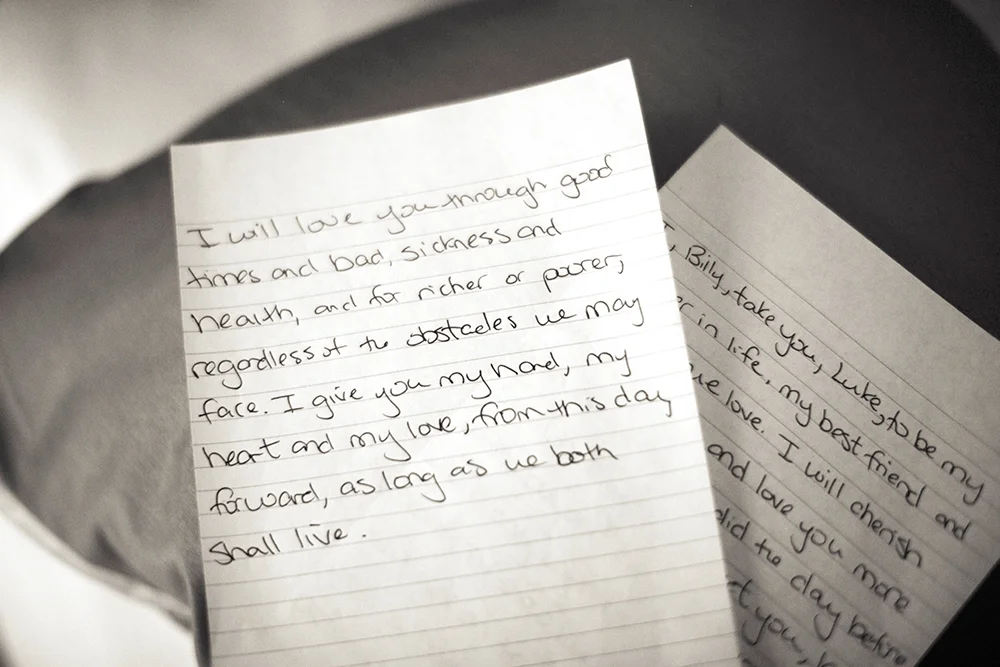 I will love you through good
times and bad, sickness and
health, and for richer or poorer,
regardless of the obstacles we may
face. I give you my hand, my
heart and my love, from this day
forward, as long as we both
shall live.
I, Billy, take you, Luke, to be my
in life, my best friend and
love. I will cherish
and love you more
did the day before
you,